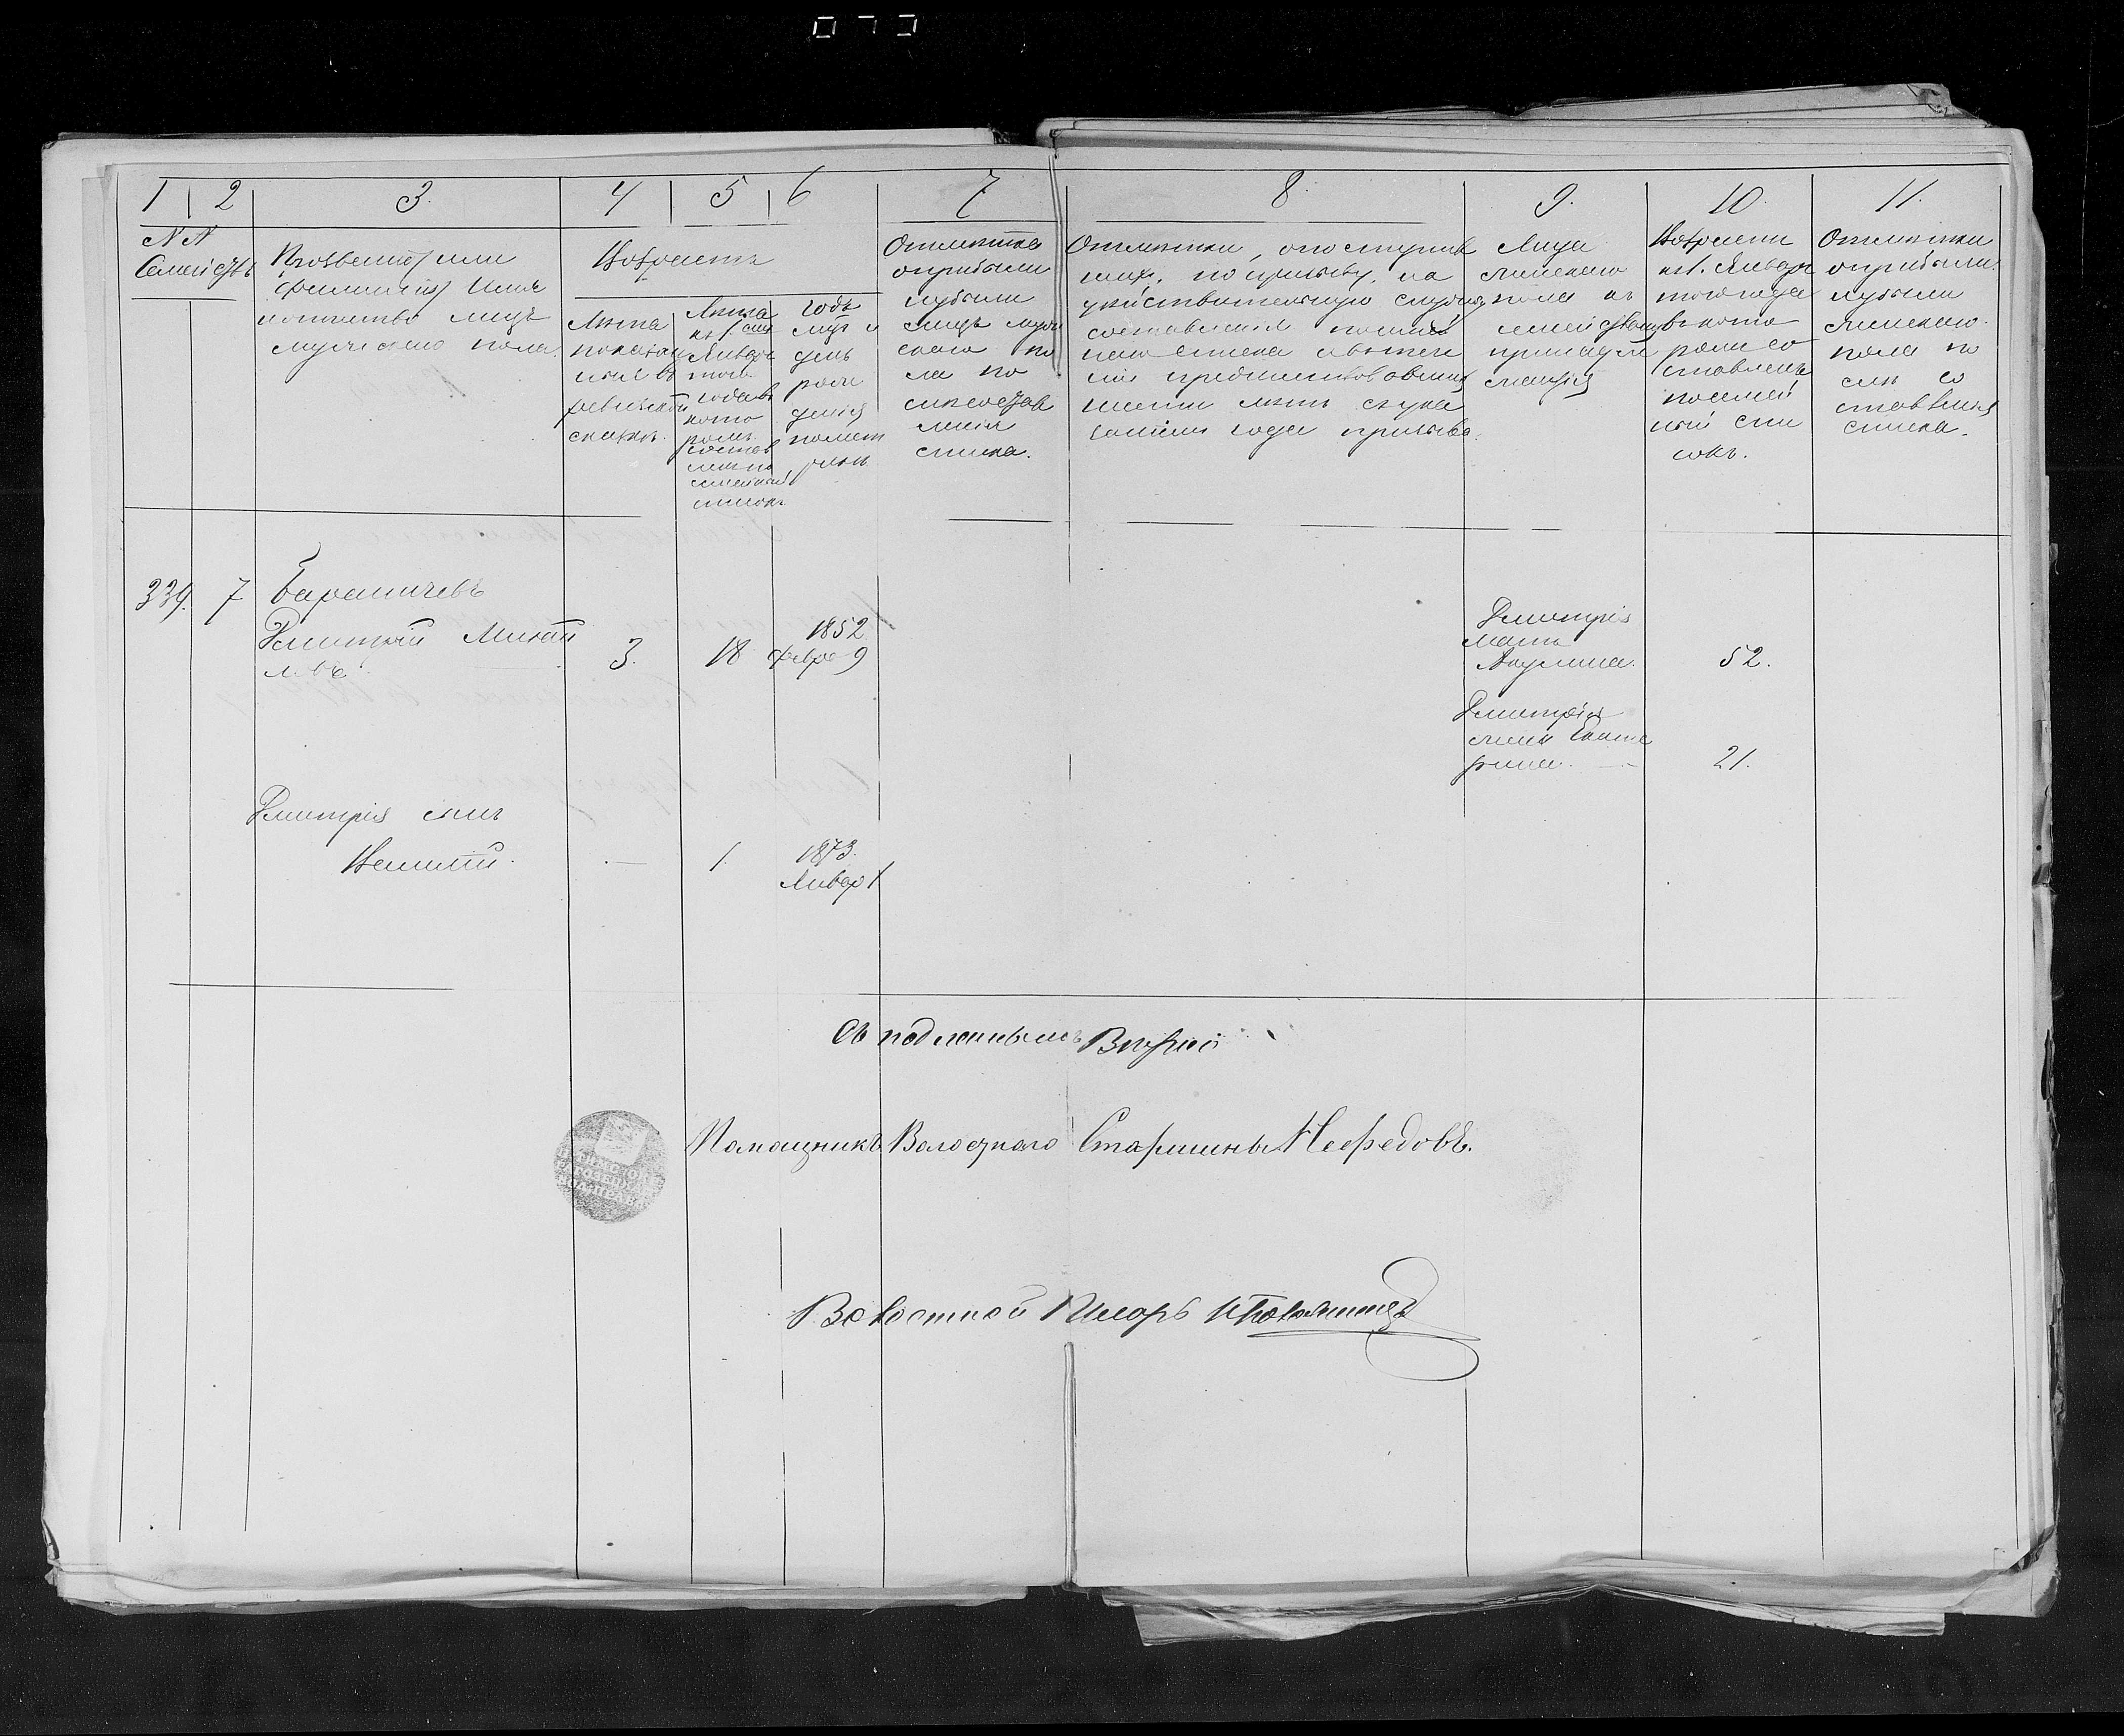 1 2 3. 4 5 6 7 8. 9. 10. 11.
№№
Семействъ
Прозваніе или
фамилія Имя
и отчество лицъ
мужескаго пола.
Возрастъ
Лѣта
показан
ныя въ
ревизской
сказкѣ.
Лѣта
къ 1 сму
Январю
того
года въ
кото
ромъ
состав
ленъ
семейный
списокъ
Годъ
мѣс и
день
рож
денія
Отмѣтка
о прибыли
и убыли
лицъ муже
скаго по
ла по
слѣ состав
ленія
списка.
Отмѣтки, о поступив
шихъ, по призыву, на
дѣйствительную службу
составленія
списка и въ тече
ніи предшествовавшихъ
шести лѣтъ
года призыва.
Лица
женскаго
пола къ
семейству
принадле
жащія
Возрасти
къ 1. Январю
того года
въ кото
ромъ со
ставленъ
посемей
ный спи
сокъ.
Отмѣтки
о прибыли
и убыли
женскаго
пола по
слѣ со
ставленія
списка.
339. 7
Дмитрій Михай
ловъ 3. 18 1852
Февра 9
Дмитрія
мать
Акулина. 52.
Дмитрія
жена Екате
рина. 21.
Дмитрія сынъ
Василій. — 1. 1873.
Январ 1
Съ подлиннымъ Вѣрно
Помощникъ Волостнаго Старшины Нефедовъ.
Волостной Писарь